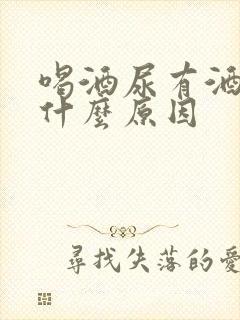 喝酒尿有酒
什麼原因
尋找失落的愛